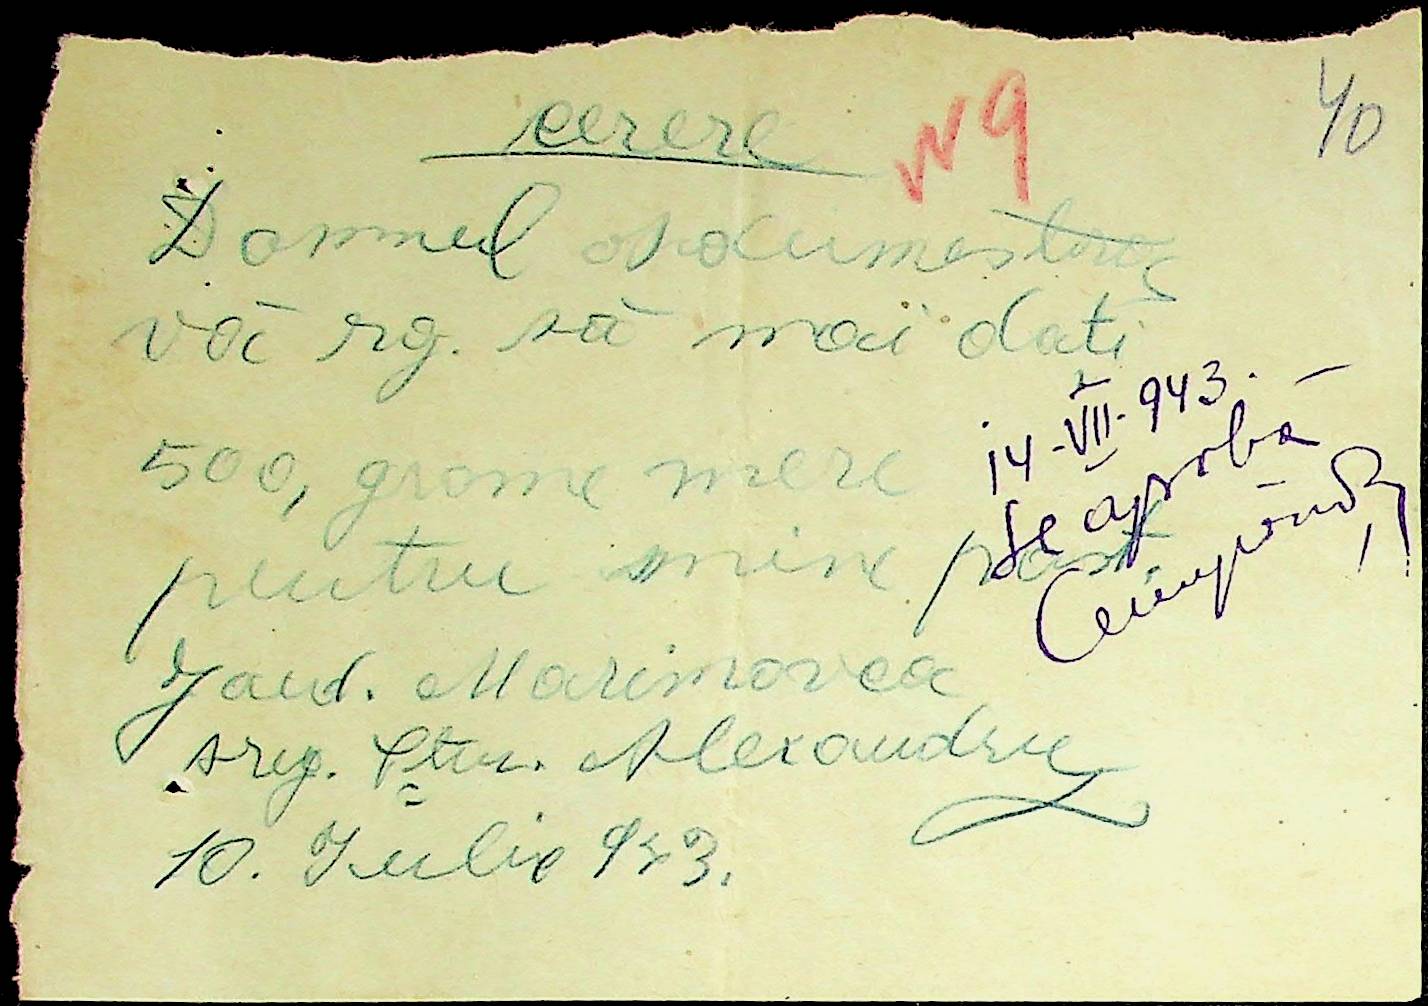 cerere
N 9
40
Domnul
vă rg. să mai dati
500, grame mere
pentru mine post.
Jand. Marinovca
sreg. Alexandru
10. Iulie 943.
14-VII-943.
Se aprobă